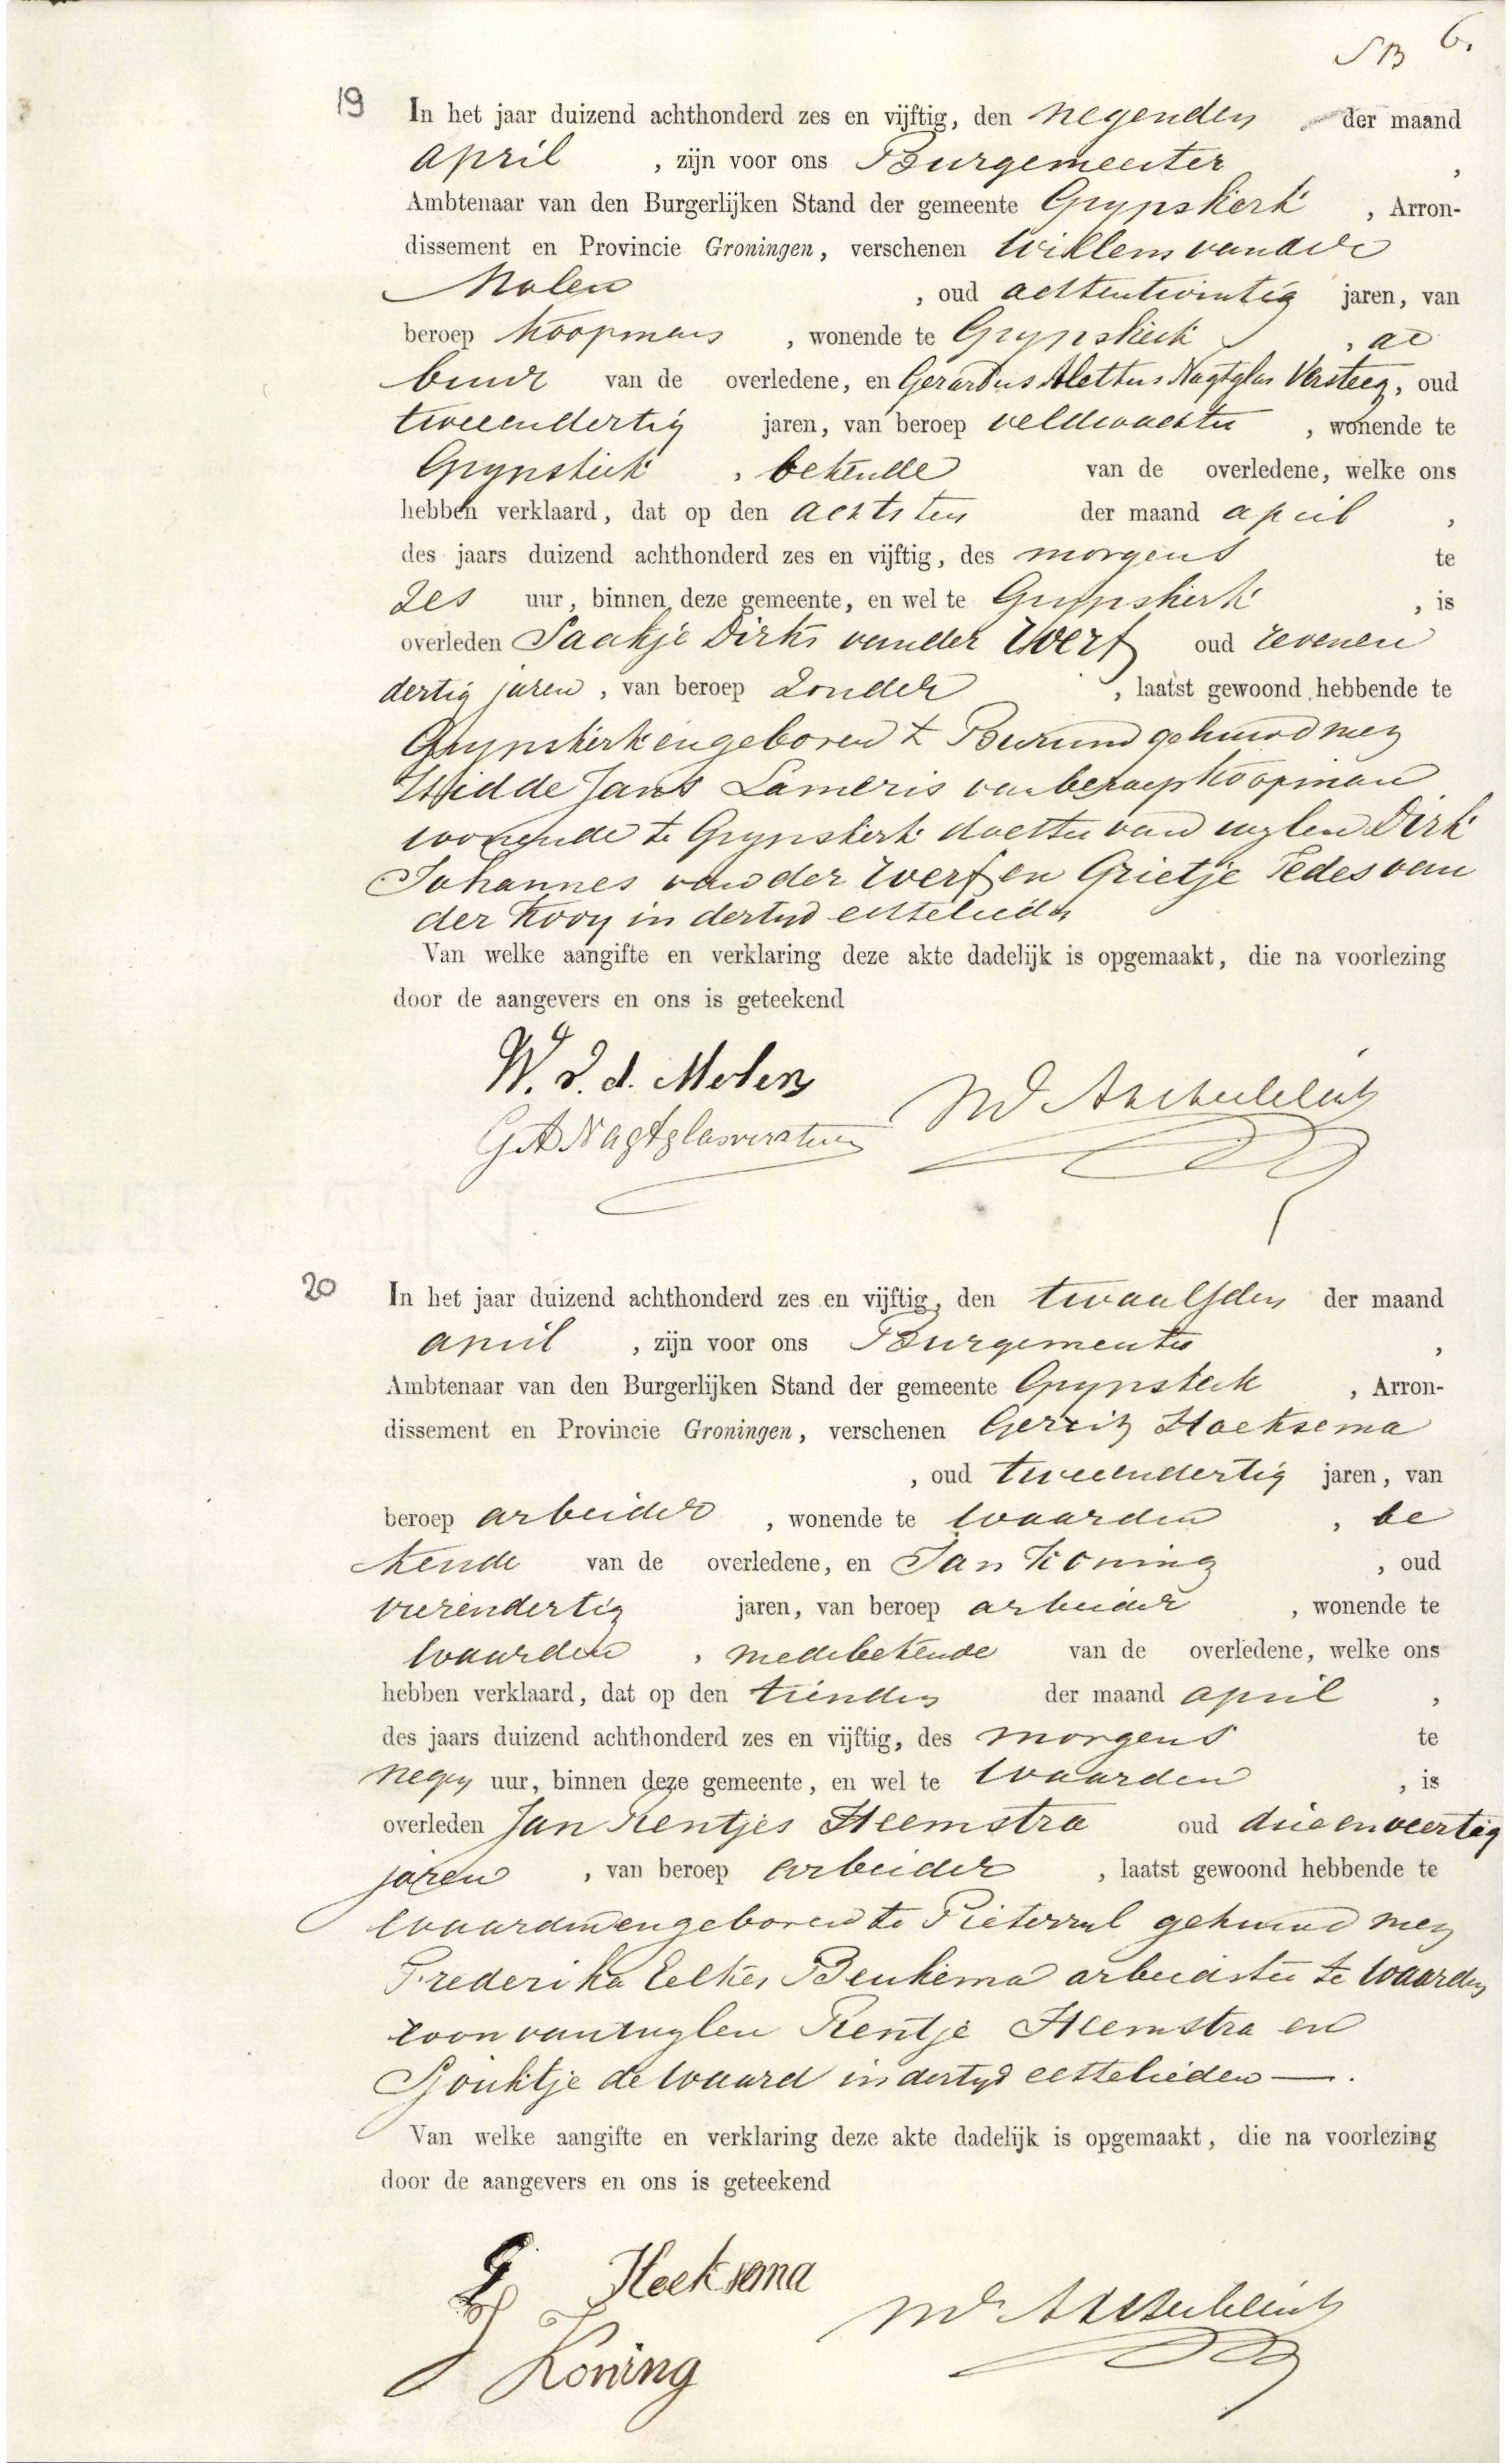 SB 6.
19 In het jaar duizend achthonderd zes en vijftig, den negenden der maand
april , zijn voor ons Burgemeester ,
Ambtenaar van den Burgerlijken Stand der gemeente Grypskerk , Arron-
dissement en Provincie Groningen, verschenen Willem van der
Molen , oud achtentwintig jaren, van
beroep koopman , wonende te Grypskerk , ge
buur van de overledene, en Gerardus Alettus Nagtglas Versteeg, oud
tweeendertig jaren, van beroep veldwachter , wonende te
Grypskerk , bekende van de overledene, welke ons
hebben verklaard, dat op den achtsten der maand april ,
des jaars duizend achthonderd zes en vijftig, des morgens te
zes uur, binnen deze gemeente, en wel te Grypskerk , is
overleden Saakje Dirks van der Werf oud zevenen
dertig jaren , van beroep zonder , laatst gewoond hebbende te
Grypskerk en geboren te Burum gehuwd met
Hidde Jans Lameris van beroep koopman
wonende te Grypskerk dochter van wylen Dirk
Johannes van der Werf en Grietje Tedes van
der Kooy in dertyd echtelieden
Van welke aangifte en verklaring deze akte dadelijk is opgemaakt, die na voorlezing
door de aangevers en ons is geteekend
W. v. d. Molen
GA Nagtglasversteeg
20 In het jaar duizend achthonderd zes en vijftig, den twaalfden der maand
april , zijn voor ons Burgemeester ,
Ambtenaar van den Burgerlijken Stand der gemeente Grypskerk , Arron-
dissement en Provincie Groningen, verschenen Gerrit Hoeksema
, oud tweeendertig jaren, van
beroep arbeider , wonende te Waarden , be
kende van de overledene, en Jan Koning , oud
vierendertig jaren, van beroep arbeider , wonende te
Waarden , medebekende van de overledene, welke ons
hebben verklaard, dat op den tienden der maand april ,
des jaars duizend achthonderd zes en vijftig, des morgens te
negen uur, binnen deze gemeente, en wel te Waarden , is
overleden Jan Rentjes Heemstra oud drieenveertig
jaren , van beroep arbeider , laatst gewoond hebbende te
Waarden en geboren te Pieterzyl gehuwd met
Frederika Eelkes Beukema arbeidster te Waarden
zoon van wylen Rentje Heemstra en
Sjouktje de Waard in dertyd echtelieden —.
Van welke aangifte en verklaring deze akte dadelijk is opgemaakt, die na voorlezing
door de aangevers en ons is geteekend
G Hoeksema
J Koning